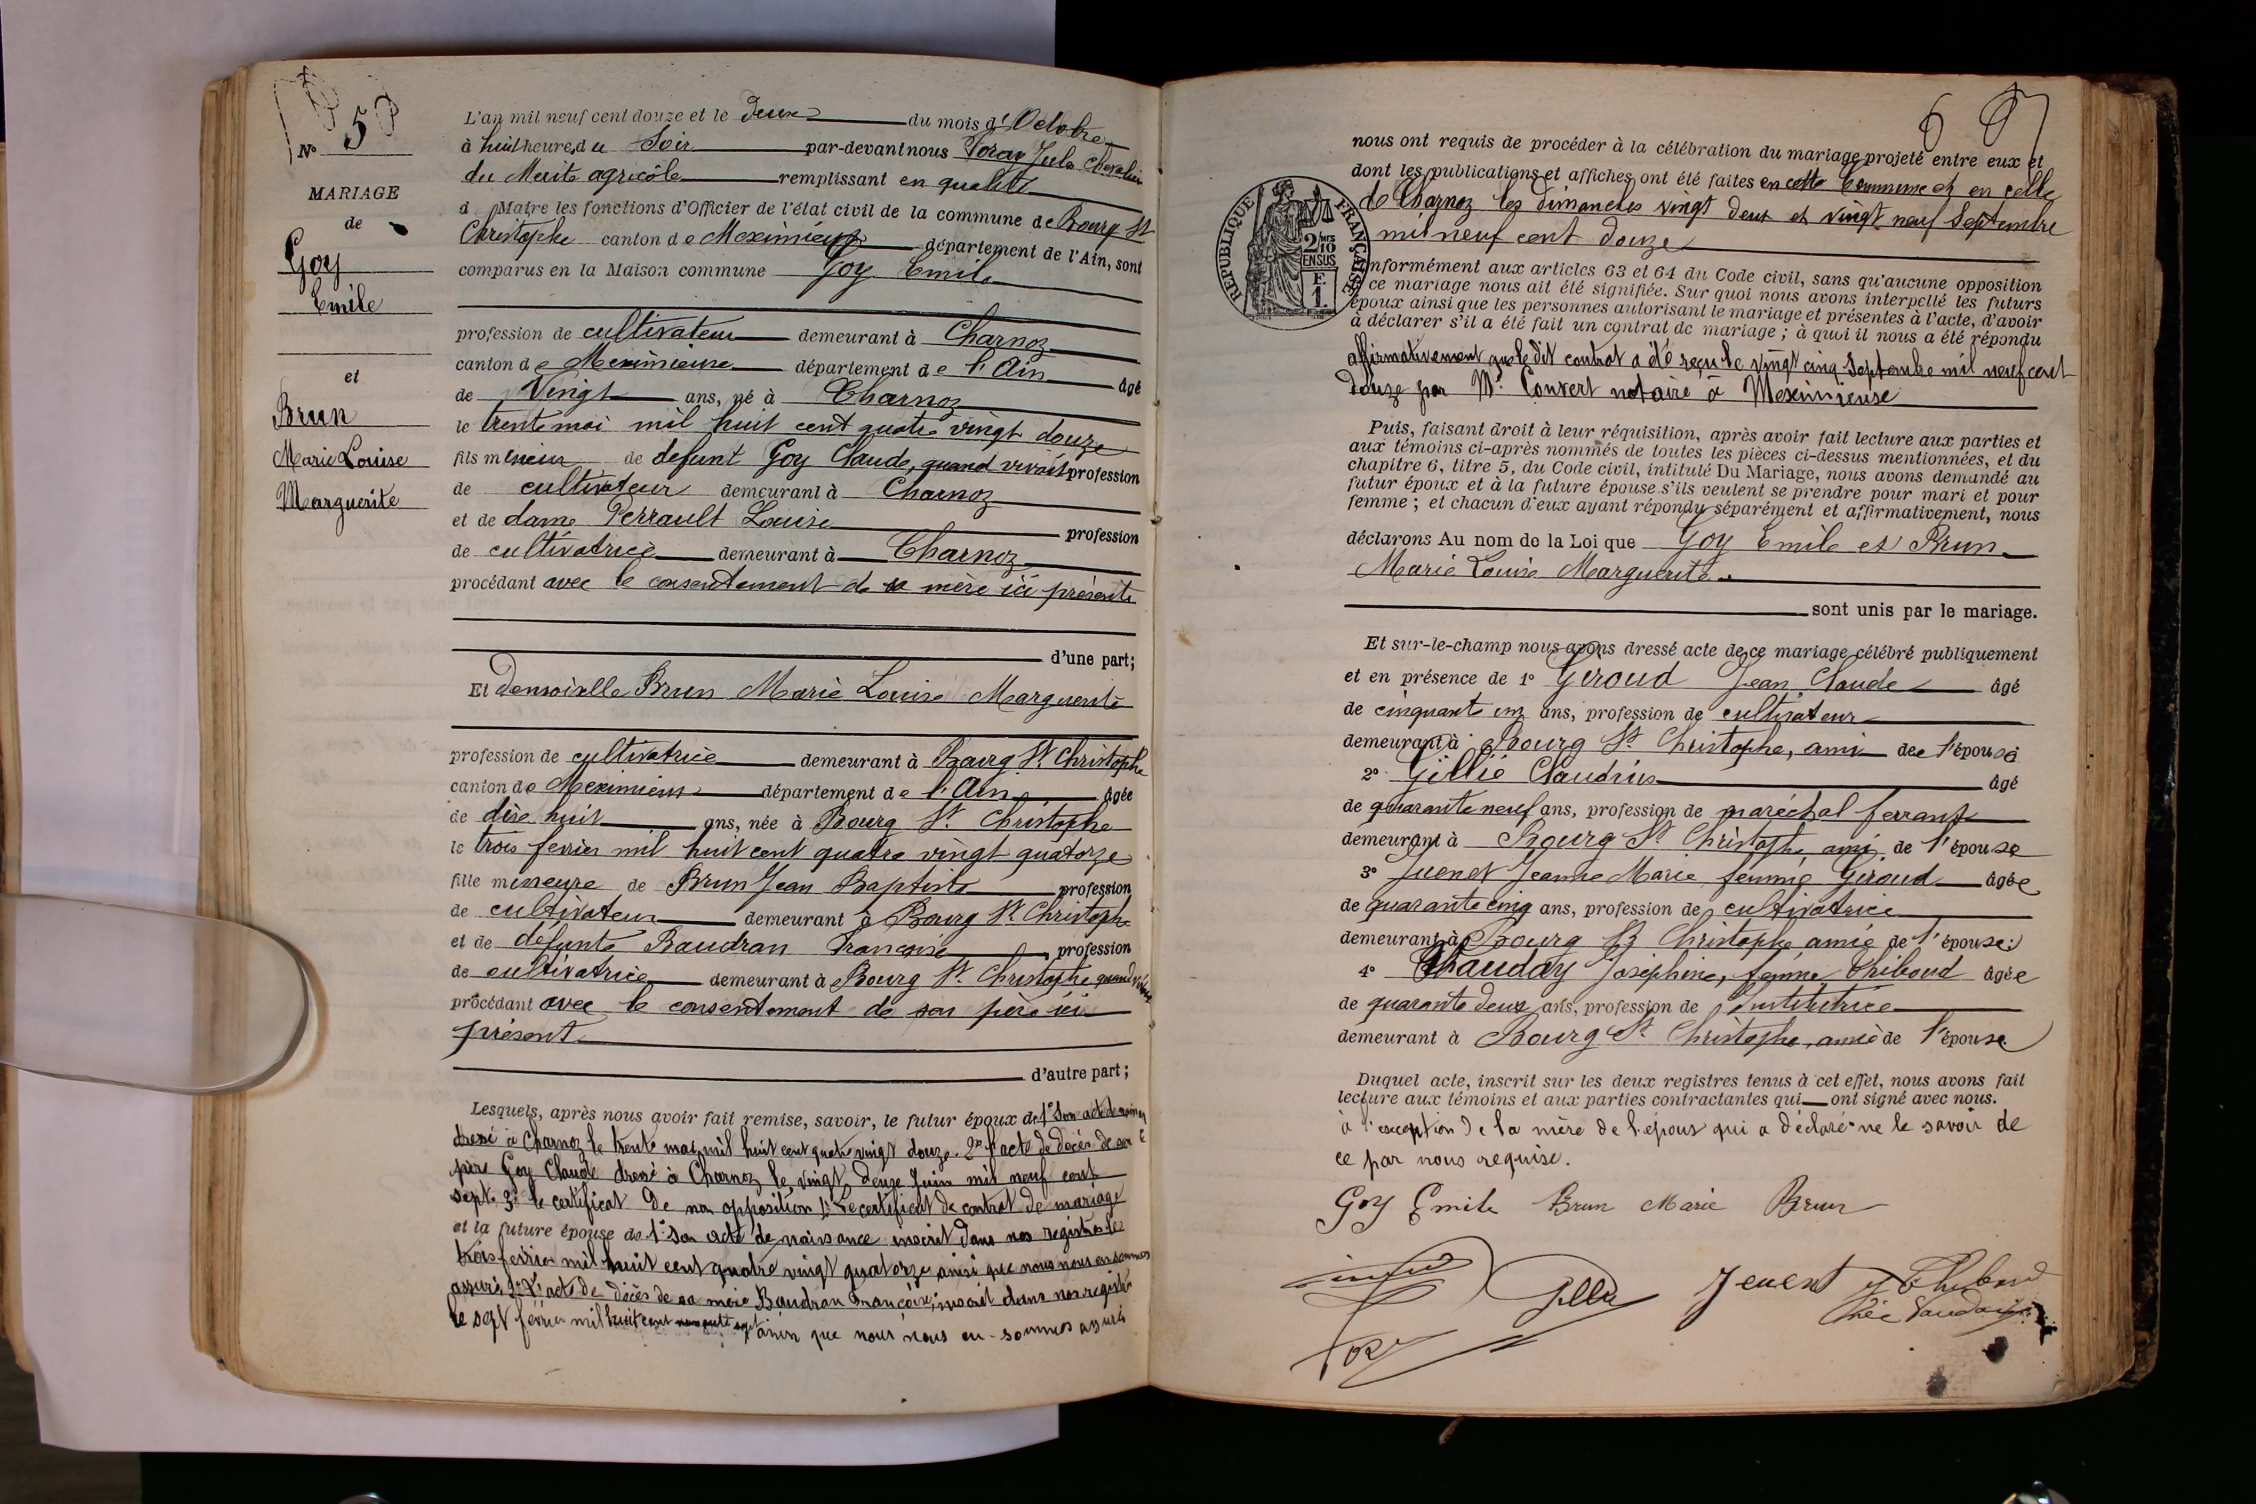 N° 5
MARIAGE
de
Goy
Emile
et
Brun
Marie Louise
Marguerite
L'an mil neuf cent douze et le deux du mois d'Octobre
à huit heures du Soir par-devant nous Foray Jules Chevalier
du Mérite agricole remplissant en qualité
d Maire les fonctions d'Officier de l'état civil de la commune de Bourg St
Christophe canton de Meximieux département de l'Ain, sont
comparus en la Maison commune Goy Emile
profession de cultivateur demeurant à Charnoz
canton de Meximieux département de l'Ain âgé
de Vingt ans, né à Charnoz
le trente mai mil huit cent quatre vingt douze
fils mineur de defunt Goy Claude, quand vivait profession
de cultivateur demeurant à Charnoz
et de dame Perrault Louise profession
de cultivatrice demeurant à Charnoz
procédant avec le consentement de sa mère ici présente
d'une part;
Et demoiselle Brun Marie Louise Marguerite
profession de cultivatrice demeurant à Bourg St Christophe
canton de Meximieux département de l'Ain âgée
de dix huit ans, née à Bourg St Christophe
le trois fevrier mil huit cent quatre vingt quatorze
fille mineure de Brun Jean Baptiste profession
de cultivateur demeurant à Bourg St Christophe
et de défunte Baudran Françoise profession
de cultivatrice demeurant à Bourg St Christophe quand vivait
procédant avec le consentement de son père ici
présent
d'autre part;
Lesquels, après nous avoir fait remise, savoir, le futur époux de 1° Son acte de naissance
dressé à Charnoz le trente mai mil huit cent quatre vingt douze. 2° l'acte de décès de son
père Goy Claude dressé à Charnoz le vingt deux Juin mil neuf cent
sept. 3° le certificat de non opposition 4° Le certificat de contrat de mariage
et la future épouse de 1° Son acte de naissance inscrit dans nos registres le
trois fevrier mil huit cent quatre vingt quatorze ainsi que nous nous en sommes
assuré 2° L'acte de décès de sa mère Baudran Françoise, inscrit dans nos registres
le sept février mil huit cent sept ainsi que nous nous en sommes assuré
nous ont requis de procéder à la célébration du mariage projeté entre eux et
dont les publications et affiches ont été faites en cette Commune et en celle
de Charnoz les dimanches vingt deux et vingt neuf Septembre
mil neuf cent douze
RÉPUBLIQUE FRANÇAISE
2/10 EN SUS
F. 1.
nformément aux articles 63 et 64 du Code civil, sans qu'aucune opposition
ce mariage nous ait été signifiée. Sur quoi nous avons interpellé les futurs
époux ainsi que les personnes autorisant le mariage et présentes à l'acte, d'avoir
à déclarer s'il a été fait un contrat de mariage ; à quoi il nous a été répondu
affirmativement que le dit contrat a été reçu le vingt cinq Septembre mil neuf cent
douze par Me Convert notaire à Meximieux
Puis, faisant droit à leur réquisition, après avoir fait lecture aux parties et
aux témoins ci-après nommés de toutes les pièces ci-dessus mentionnées, et du
chapitre 6, titre 5, du Code civil, intitulé Du Mariage, nous avons demandé au
futur époux et à la future épouse s'ils veulent se prendre pour mari et pour
femme ; et chacun d'eux ayant répondu séparément et affirmativement, nous
déclarons Au nom de la Loi que Goy Emile et Brun
Marie Louise Marguerite
sont unis par le mariage.
Et sur-le-champ nous avons dressé acte de ce mariage célébré publiquement
et en présence de 1° Giroud Jean Claude âgé
de cinquante un ans, profession de cultivateur
demeurant à Bourg St Christophe, ami de l'épouse
2° Gillié Claudius âgé
de quarante neuf ans, profession de maréchal ferrant
demeurant à Bourg St Christophe ami de l'épouse
3° Juenet Jeanne Marie femme Giroud âgée
de quarante cinq ans, profession de cultivatrice
demeurant à Bourg St Christophe amie de l'épouse
4° Vauday Joséphine, femme Thiboud âgée
de quarante deux ans, profession de Institutrice
demeurant à Bourg St Christophe, amie de l'épouse
Duquel acte, inscrit sur les deux registres tenus à cet effet, nous avons fait
lecture aux témoins et aux parties contractantes qui ont signé avec nous.
à l'exception de la mère de l'époux qui a déclaré ne le savoir de
ce par nous requise.
Goy Emile Brun Marie Brun
Gillié Jeuent f Thiboud
née Vauday